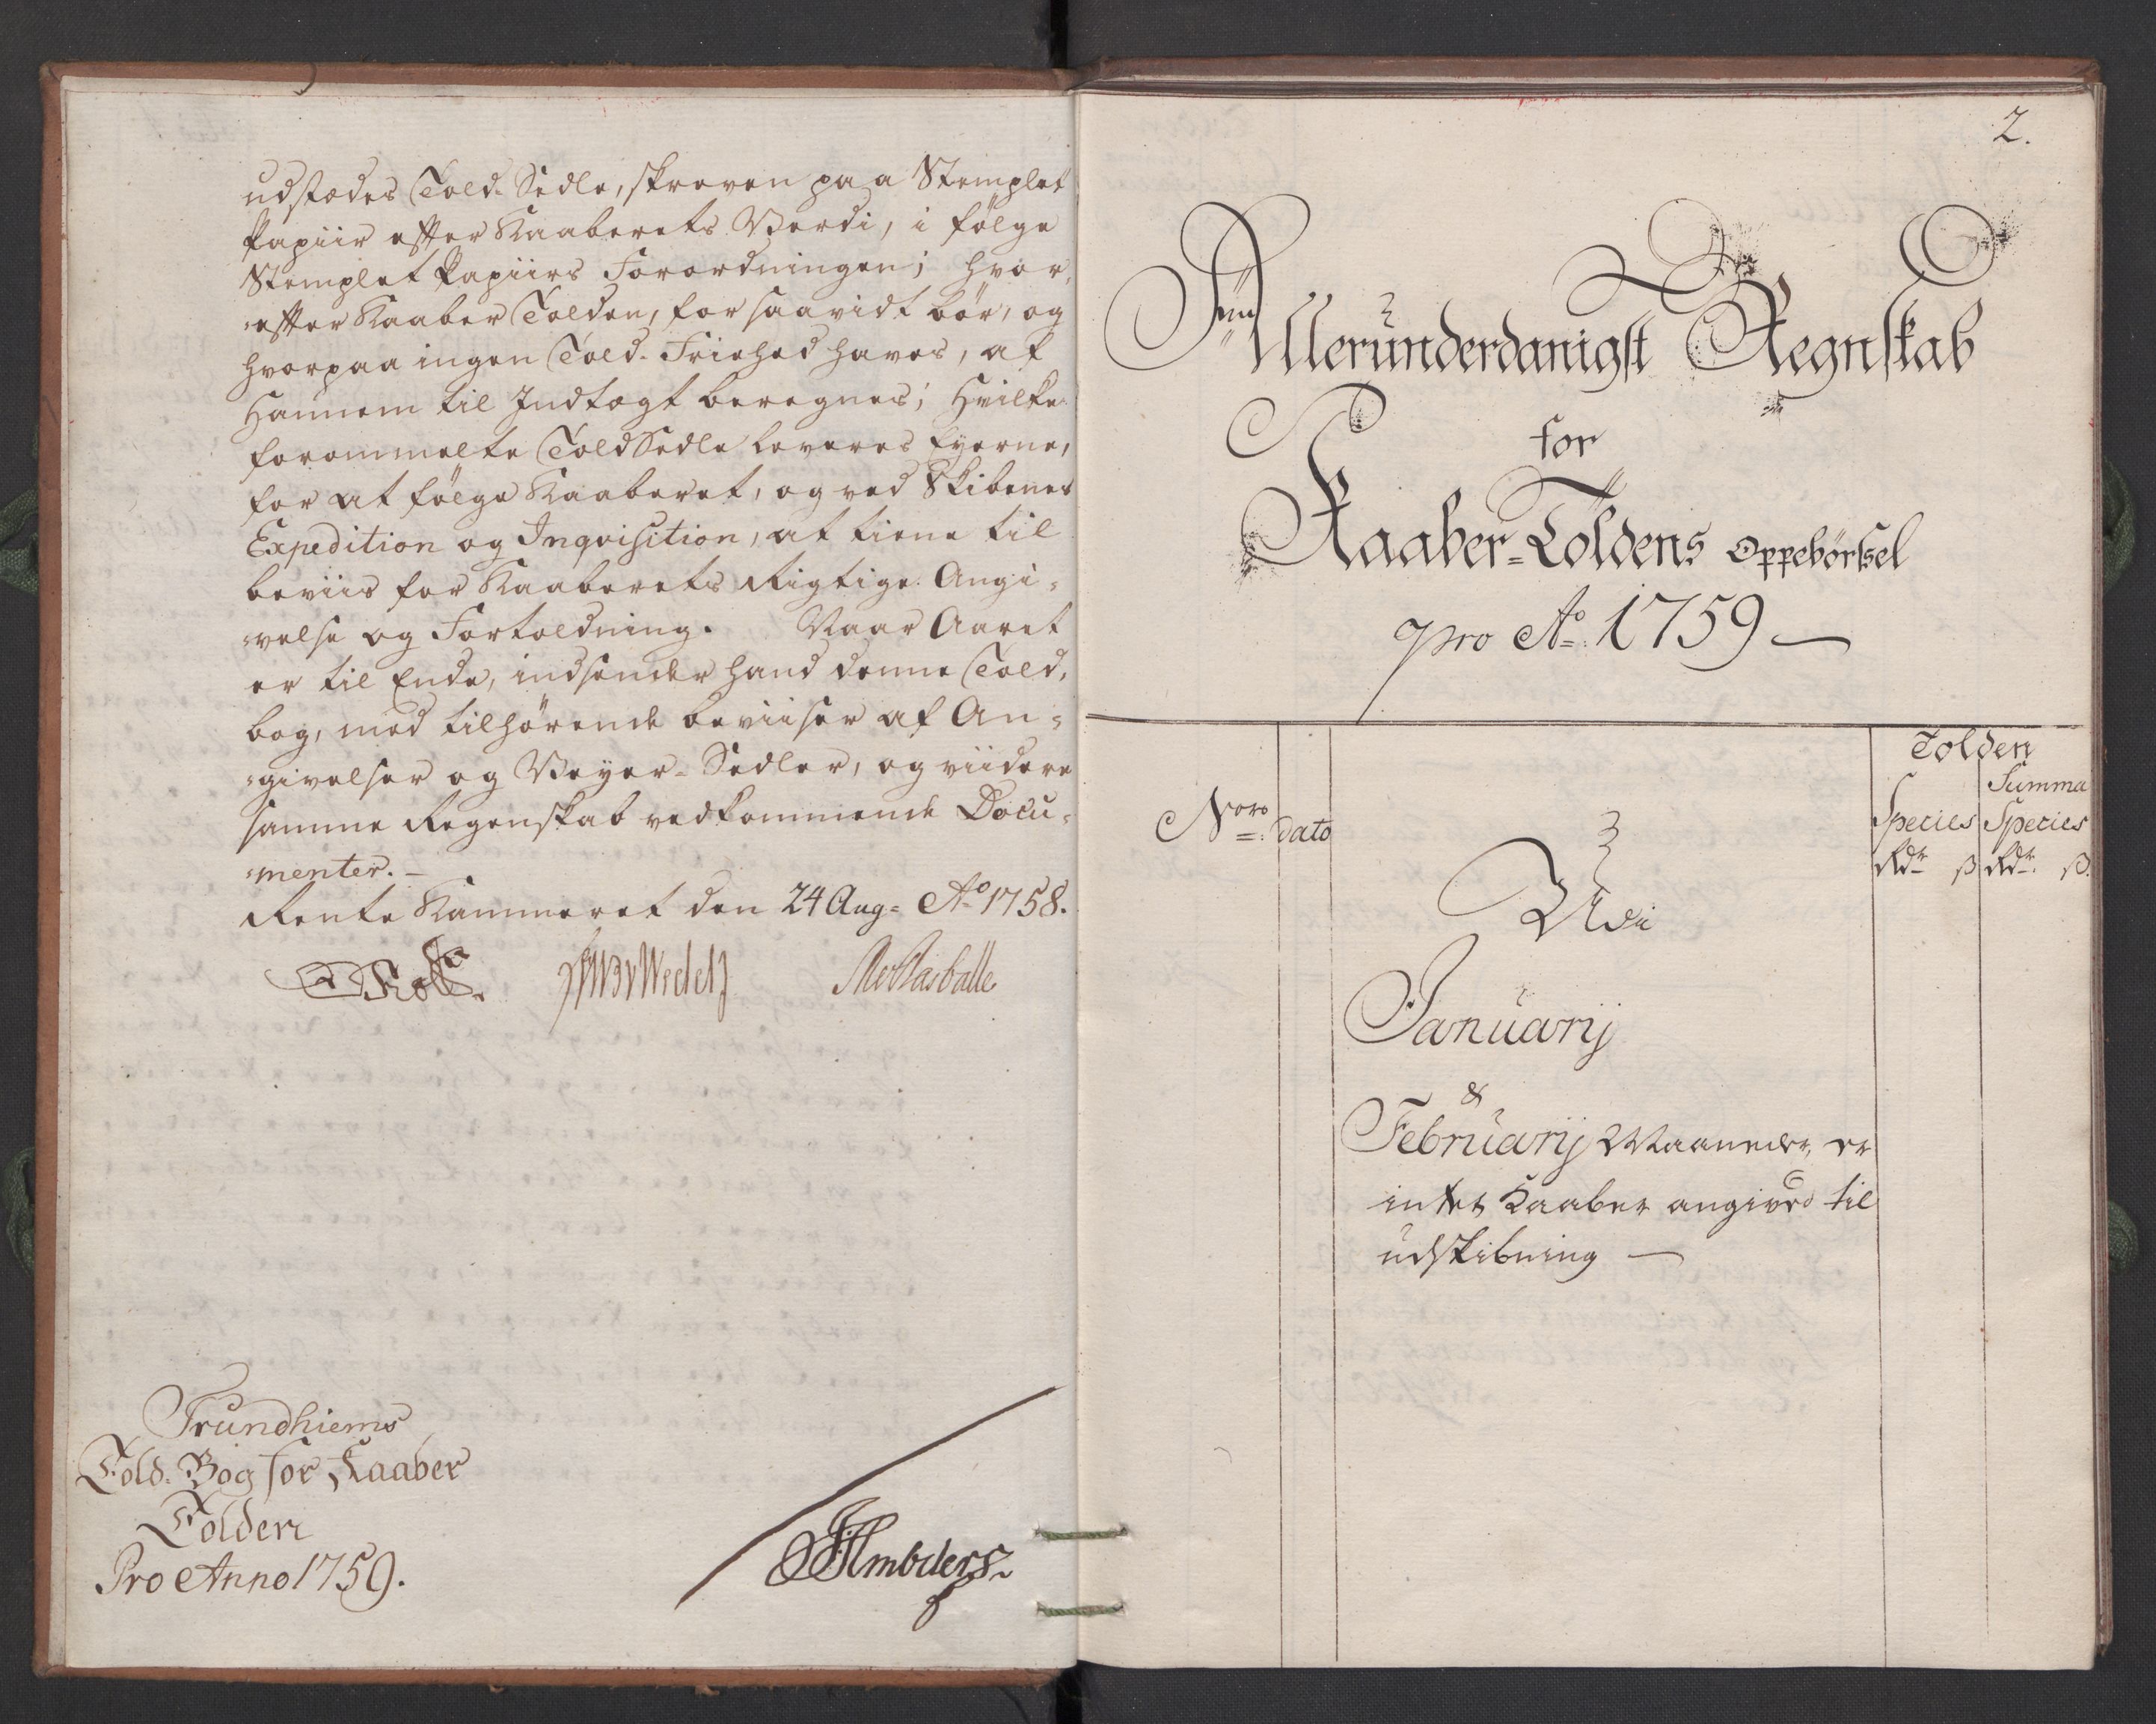 udstædes Told-Sedle, skreven paa Stemplet
Papiir efter Kaaberets Verdi, i følge
Stemplet Papiirs Forordningen; hvor,
efter Kaaber Tolden, for saavidt bör, og
hvorpaa ingen Told-Friehed haves, af
Hannem til Indtægt beregnes; Hvilke
forommelte ToldSedle leveres Eyerne,
for at følge Kaaberet, og ved Skibenes
Expedition og Inqvisition, at tiene til
beviis for Kaaberets Rigtige Angi,
velse og Fortoldning. Naar Aaret
er til Ende, indsender hand denne Told,
bog, med tilhörende beviiser af An=
givelser og Veyer-Sedler, og viidere
samme Regenskab vedkommende Docu=
menter. –
Rente Kammeret den 24 Aug= Ao 1758.
Trundhiems
Told-Bog for Kaaber
Tolden
Pro Anno 1759.
2.
Alleründerdanigst Regnskab
for
Kaaber=Toldens Oppebörsel
pro Ao 1759 –
Tolden
Summa
Noro dato Species Species
Rdr ß Rdr. ß.
Udi
Januarij
&
Februarij Maaneder, er
intet Kaaber angived til
udskibning –